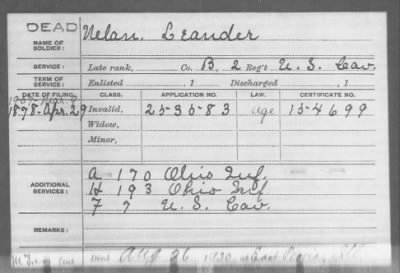 DEAD
NAME OF SOLDIER: Nelan. Leander
SERVICE: Late rank, Co. B, 2 Reg't U. S. Cav.
TERM OF SERVICE: Enlisted , 1 Discharged , 1
DATE OF FILING. CLASS. APPLICATION NO. LAW. CERTIFICATE NO.
1878-Apr. 29 Invalid, 253583 Age 154699
Widow,
Minor,
ADDITIONAL SERVICES:
A 170 Ohio Inf.
H 193 Ohio Inf
F 7 U. S. Cav.
REMARKS:
Died Aug 26, 1930, at East